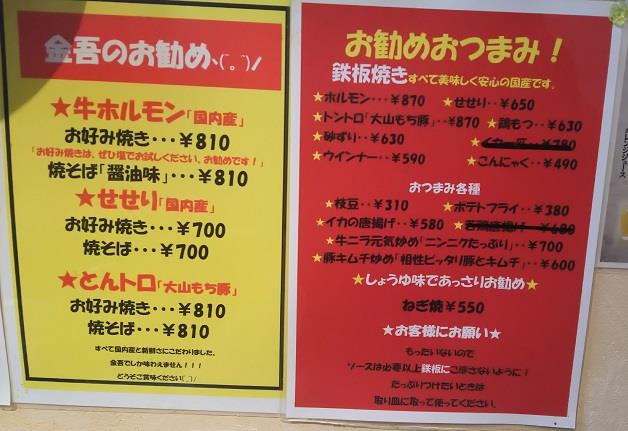 金吾のお勧めヽ(゜。゜)ノ
★牛ホルモン「国内産」
お好み焼き・・・￥810
「お好み焼きは、ぜひ塩でお試しください、お勧めです！」
焼そば「醤油味」・・・￥810
★せせり「国内産」
お好み焼き・・・￥700
焼そば・・・￥700
★とんトロ「大山もち豚」
お好み焼き・・・￥810
焼そば・・・￥810
すべて国内産と新鮮さにこだわりました、
金吾でしか味わえません！！！
どうぞご賞味ください
お勧めおつまみ！
鉄板焼きすべて美味しく安心の国産です。
★ホルモン・・・￥870 ★せせり・・￥650
★トントロ「大山もち豚」・・￥870 ★鶏もつ・・￥630
★砂ずり・・￥630
★ウインナー・・￥590 ★こんにゃく・・￥490
おつまみ各種
★枝豆・・￥310 ★ポテトフライ・・￥380
★イカの唐揚げ・・￥580 ★若鶏唐揚げ・・￥680
★牛ニラ元気炒め「ニンニクたっぷり」・・￥700
★豚キムチ炒め「相性ピッタリ豚とキムチ」・・￥600
★しょうゆ味であっさりお勧め★
ねぎ焼￥550
★お客様にお願い★
もったいないので
ソースは必要以上鉄板にこぼさないように！
たっぷりつけたいときは
取り皿に取って使ってください。
オレンジジュース